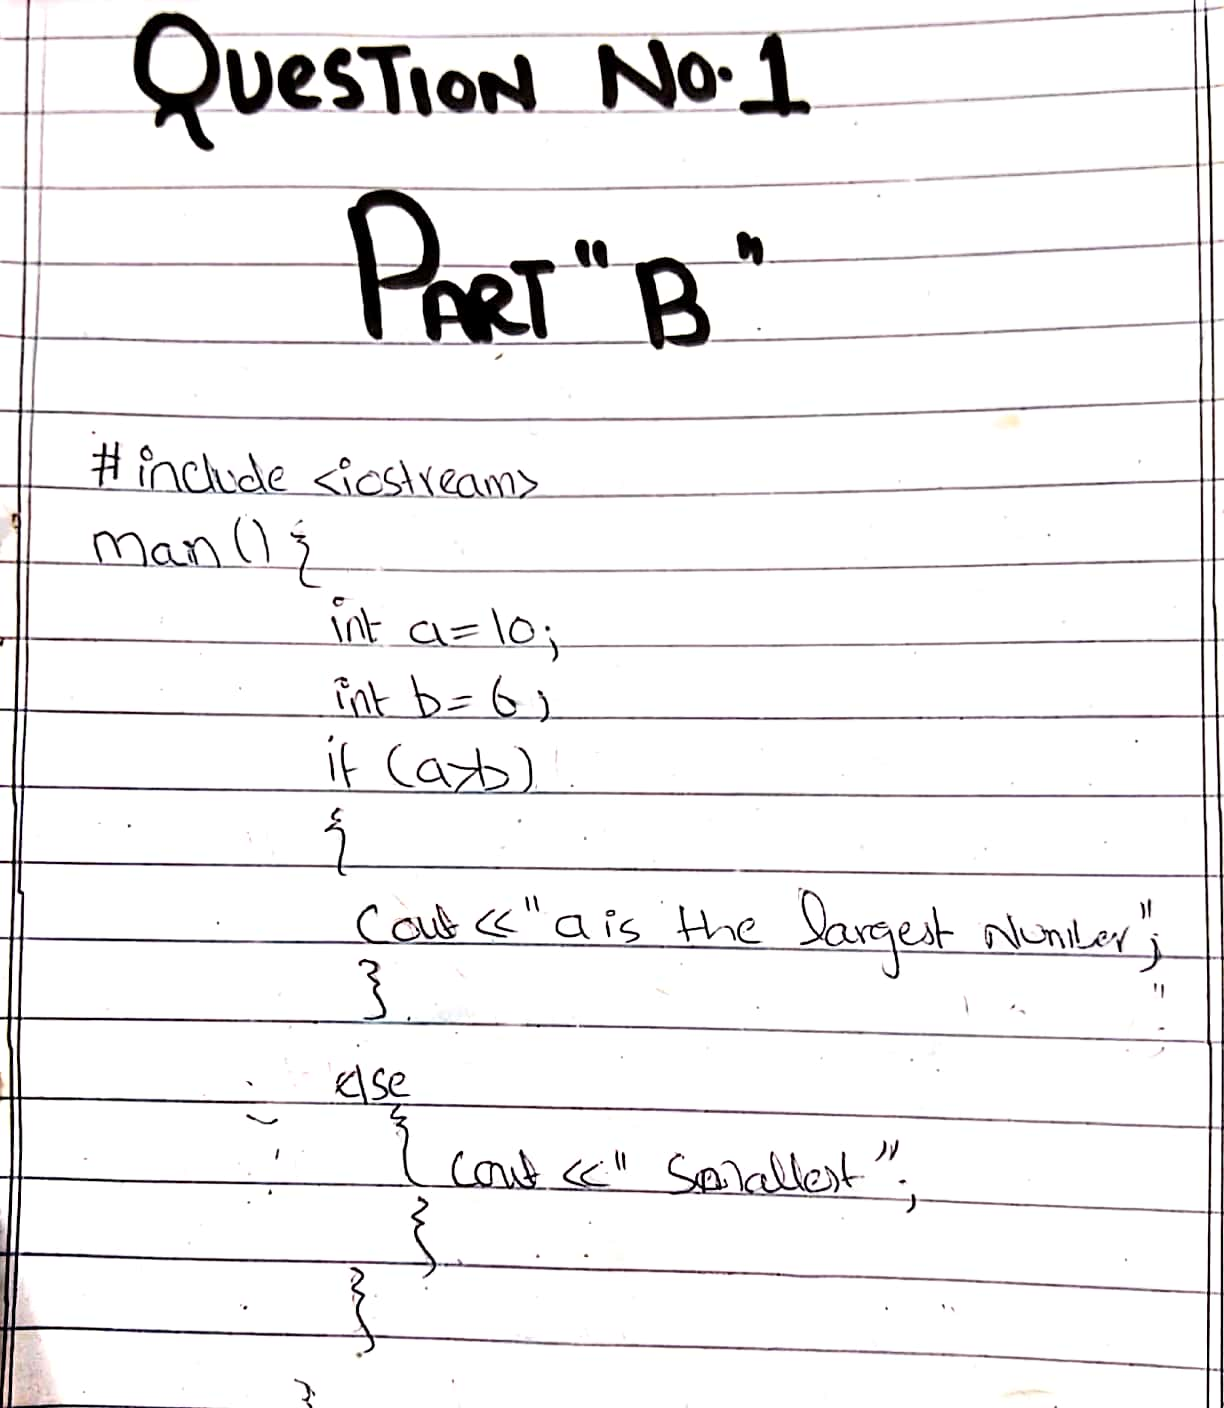 QUESTION No. 1
PART "B"
#include <iostream>
man () {
int a=10;
int b=6;
if (a>b)
{
Cout <<" a is the largest Number";
}
else
{ cout <<" Smallest";
}
}
}